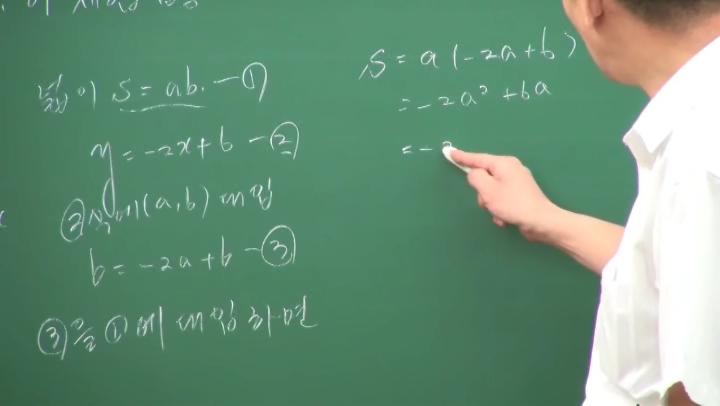 넓이 S = ab. - ①
y = -2x + 6 - ②
②식에 (a, b) 대입
b = -2a + 6 - ③
③을 ①에 대입하면
S = a(-2a + 6)
= -2a² + 6a
= -2